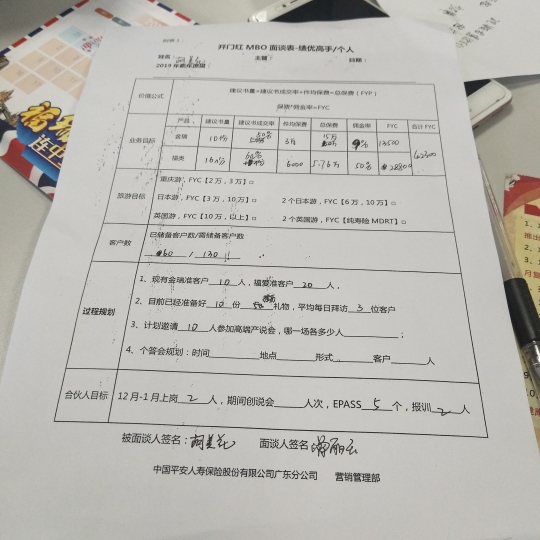 开门红 MBO 面谈表-绩优高手/个人
姓名： 主题： 日期：
价值公式
建议书量*建议书成交率*件均保费=总保费（FYP）
保费*佣金率=FYC
业务目标
产品 建议书量 建议书成交率 件均保费 总保费 佣金率 FYC 合计 FYC
金瑞 10件 50% 3万 15万 9% 13500
福类 16件 60% 6000 5.76万 50% 28800
旅游目标
重庆游，FYC【2 万，3 万】□
日本游，FYC【3 万，10 万】□ 2 个日本游，FYC【6 万，10 万】□
英国游，FYC【10 万，以上】□ 2 个英国游，FYC【纯寿险 MDRT】□
客户数
已储备客户数/需储备客户数
60 / 130
过程规划
1、现有金瑞准客户 10 人，福爱准客户 20 人，
2、目前已经准备好 10 份 礼物，平均每日拜访 3 位客户
3、计划邀请 10 人参加高端产说会，哪一场各多少人 ；
4、个答会规划：时间 地点 形式 客户 人
合伙人目标
12 月-1 月上岗 2 人，期间创说会 人次，EPASS 5 个，报训 2 人
被面谈人签名： 面谈人签名：
中国平安人寿保险股份有限公司广东分公司 营销管理部